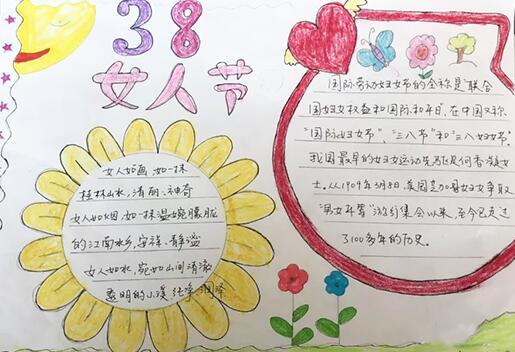 38
女人节
女人如画，如一抹
桂林山水，清丽、神奇
女人如烟，如一抹温婉朦胧
的江南水乡，安祥、静谧
女人如水，宛如山间清澈
透明的小溪 纯净 润泽
国际劳动妇女节的全称是"联合
国妇女权益和国际和平日，在中国又称
"国际妇女节"，"三八节"和"三八妇女节"。
我国最早的妇女运动先驱是何香凝女
士，从1909年3月8日，美国芝加哥妇女争取
"男女平等"游行集会以来，至今已走过
了100多年的历史。